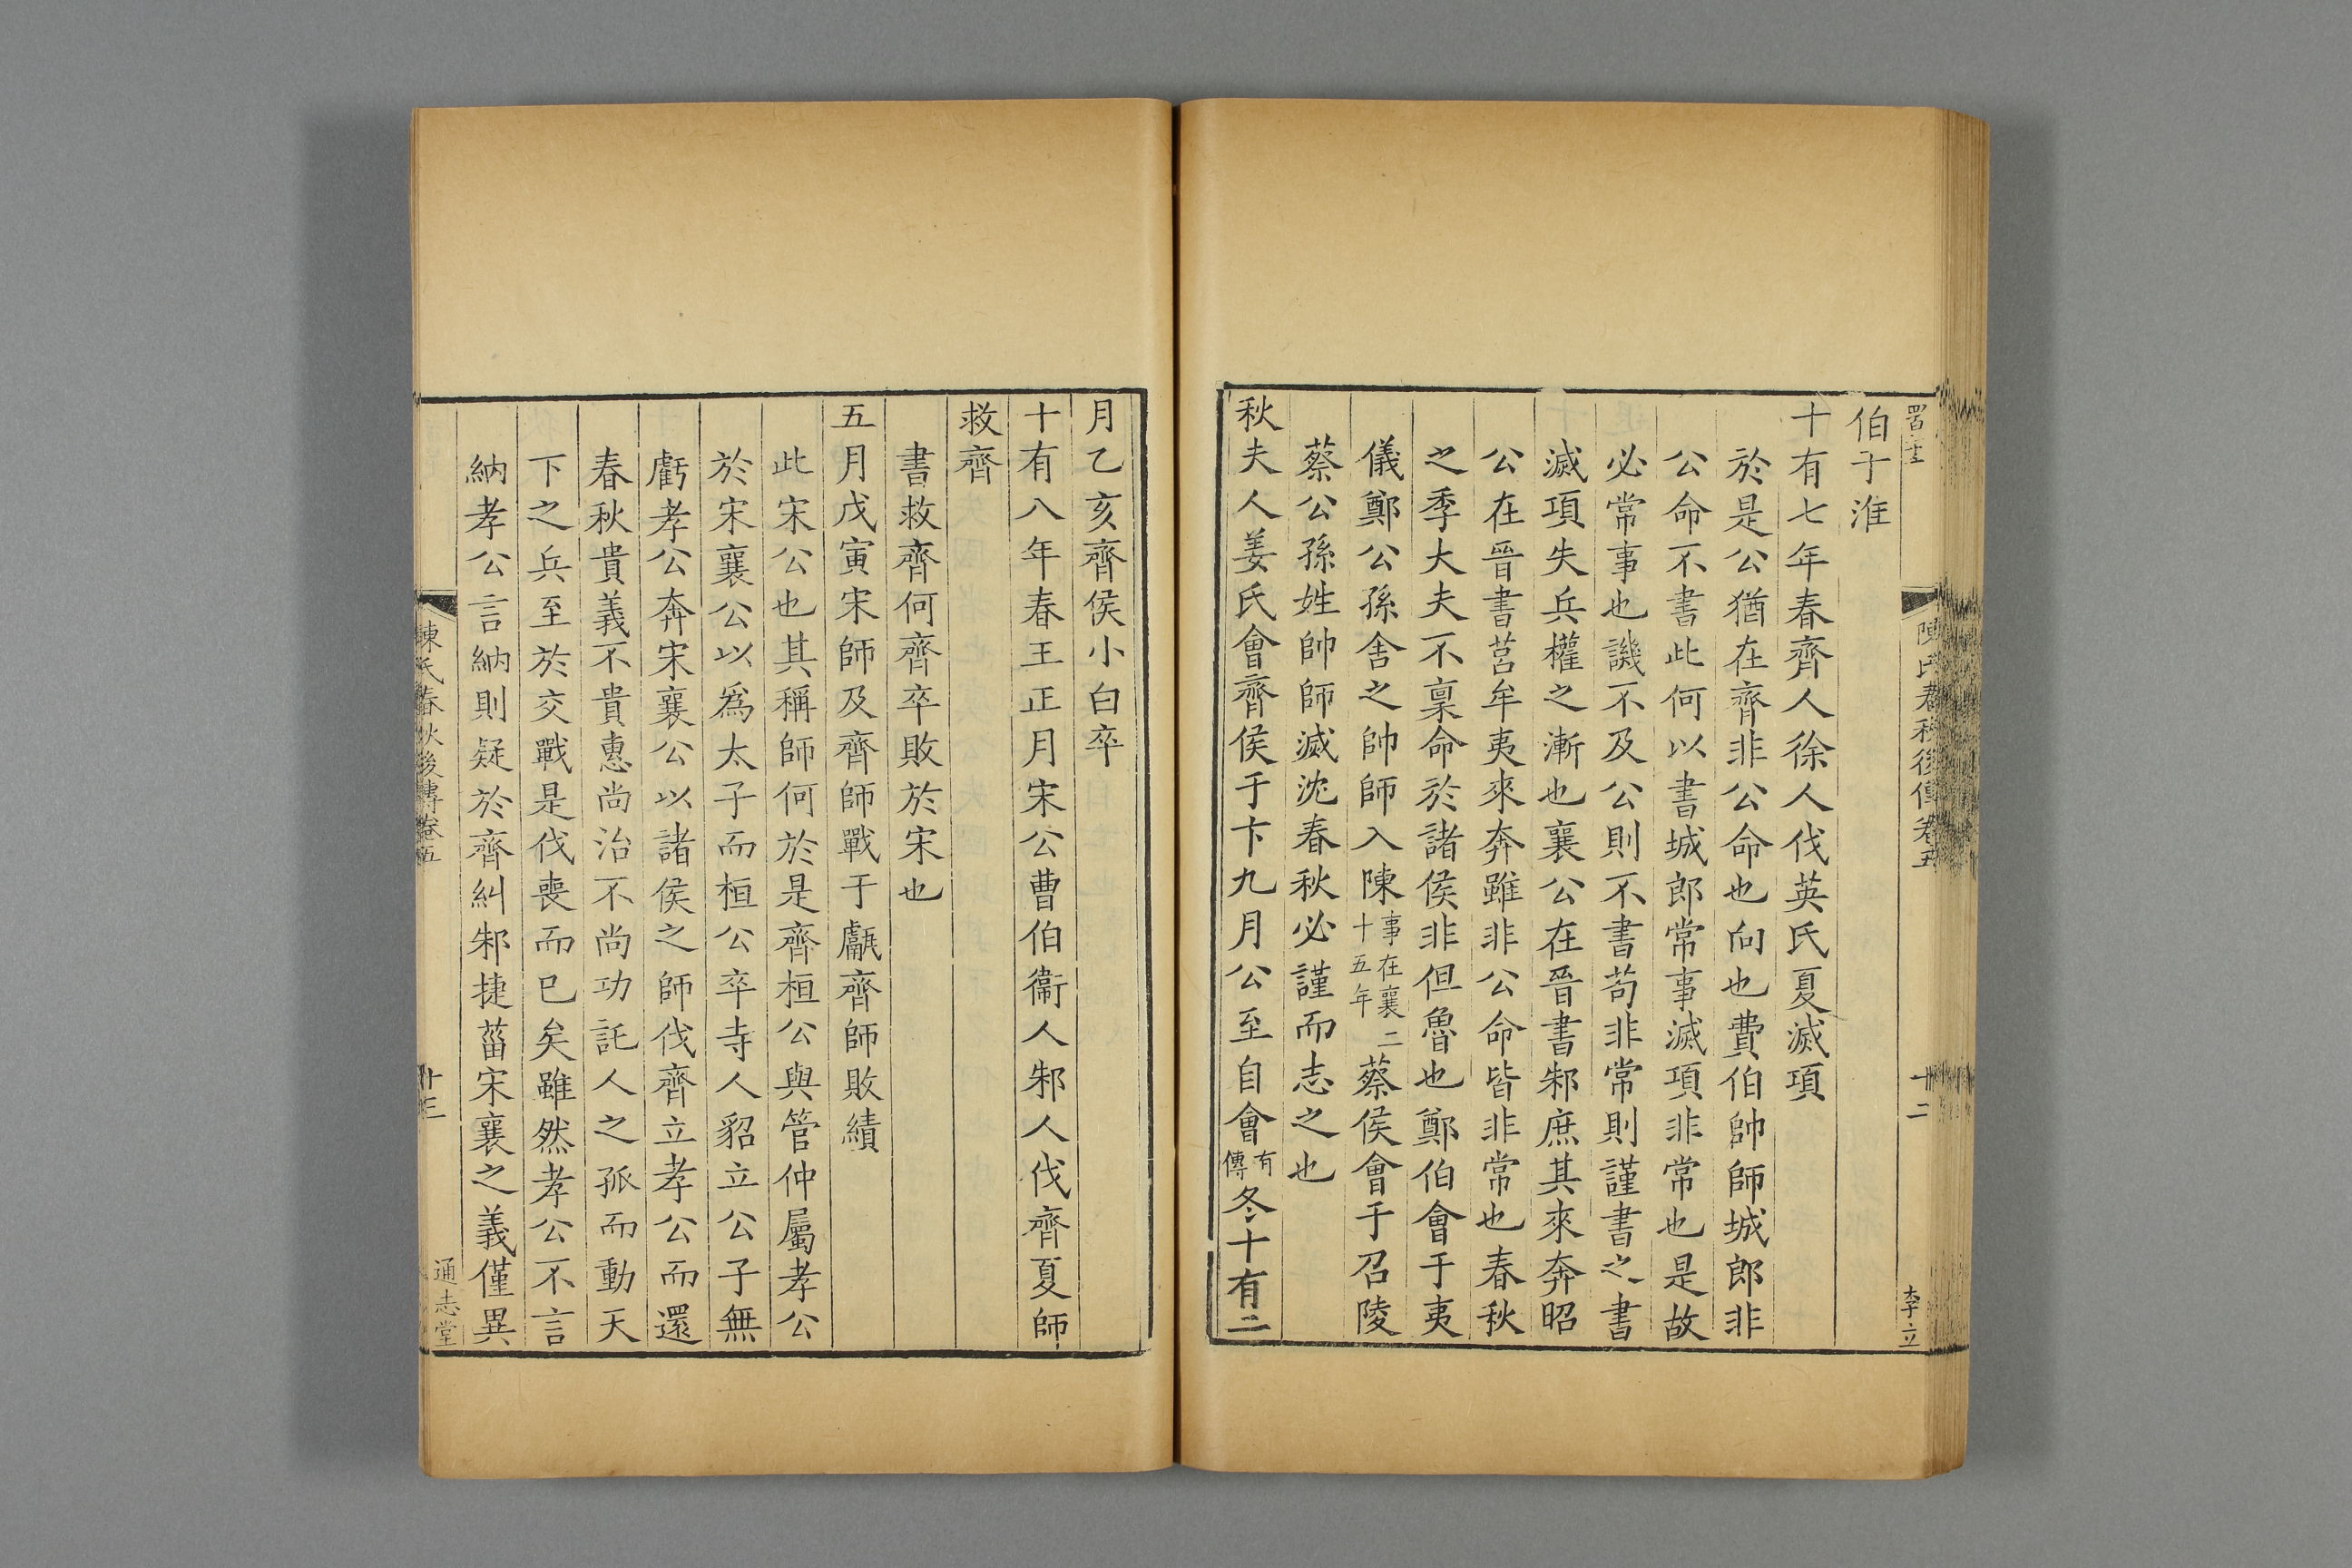 陳氏春秋後傳卷五
十二
李立
伯于淮
十有七年春齊人徐人伐英氏夏滅項
於是公猶在齊非公命也向也費伯帥師城郎非
公命不書此何以書城郎常事滅項非常也是故
必常事也譏不及公則不書苟非常則謹書之書
滅項失兵權之漸也襄公在晉書邾庶其來奔昭
公在晉書莒牟夷來奔雖非公命皆非常也春秋
之季大夫不稟命於諸侯非但魯也鄭伯會于夷
儀鄭公孫舍之帥師入陳事在襄二十五年蔡侯會于召陵
蔡公孫姓帥師滅沈春秋必謹而志之也
秋夫人姜氏會齊侯于卞九月公至自會有傳冬十有二
月乙亥齊侯小白卒
十有八年春王正月宋公曹伯衞人邾人伐齊夏師
救齊
書救齊何齊卒敗於宋也
五月戊寅宋師及齊師戰于甗齊師敗績
此宋公也其稱師何於是齊桓公與管仲屬孝公
於宋襄公以爲太子而桓公卒寺人貂立公子無
虧孝公奔宋襄公以諸侯之師伐齊立孝公而還
春秋貴義不貴惠尚治不尚功託人之孤而動天
下之兵至於交戰是伐喪而已矣雖然孝公不言
納孝公言納則疑於齊糾邾捷菑宋襄之義僅異
陳氏春秋後傳卷五
十三
通志堂